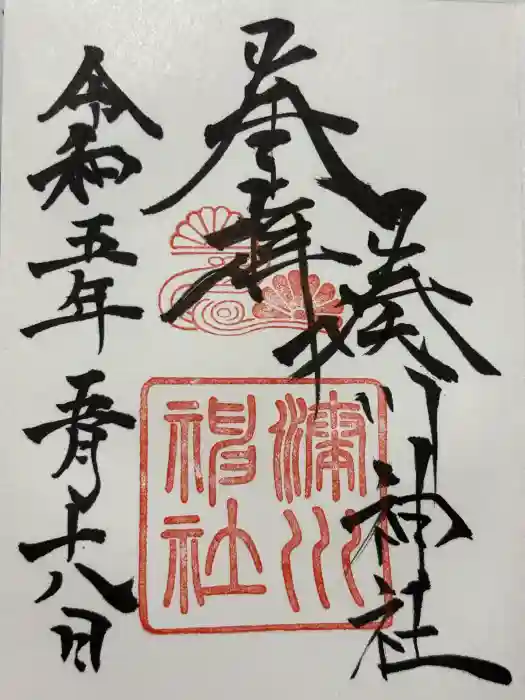 奉拝
湊川神社
令和五年五月十八日
湊川
神社